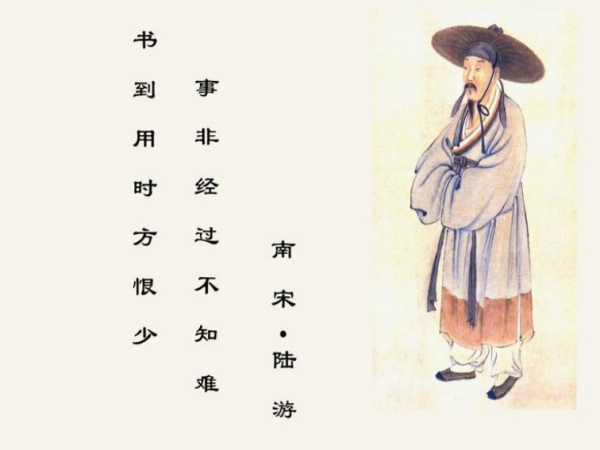 书到用时方恨少
事非经过不知难
南宋·陆游